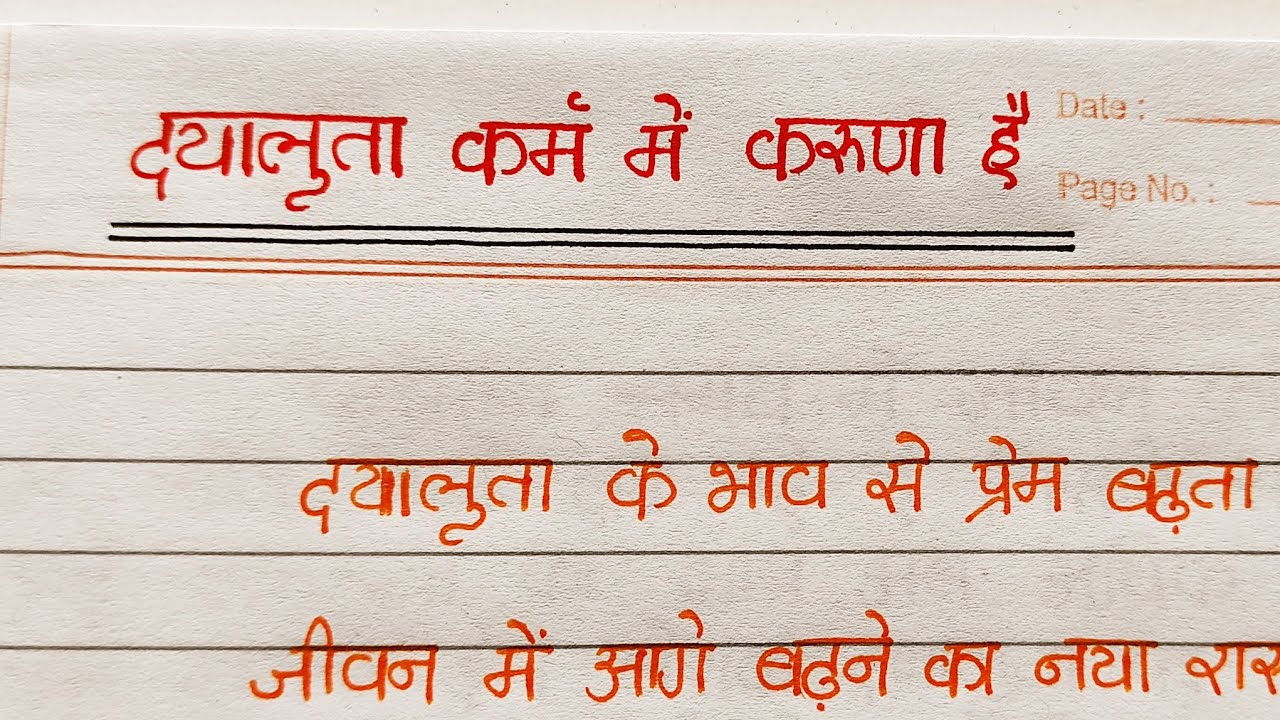 दयालुता कर्म में करुणा है
Date :
Page No. :
दयालुता के भाव से प्रेम बढ़ता
जीवन में आगे बढ़ने का नया रास